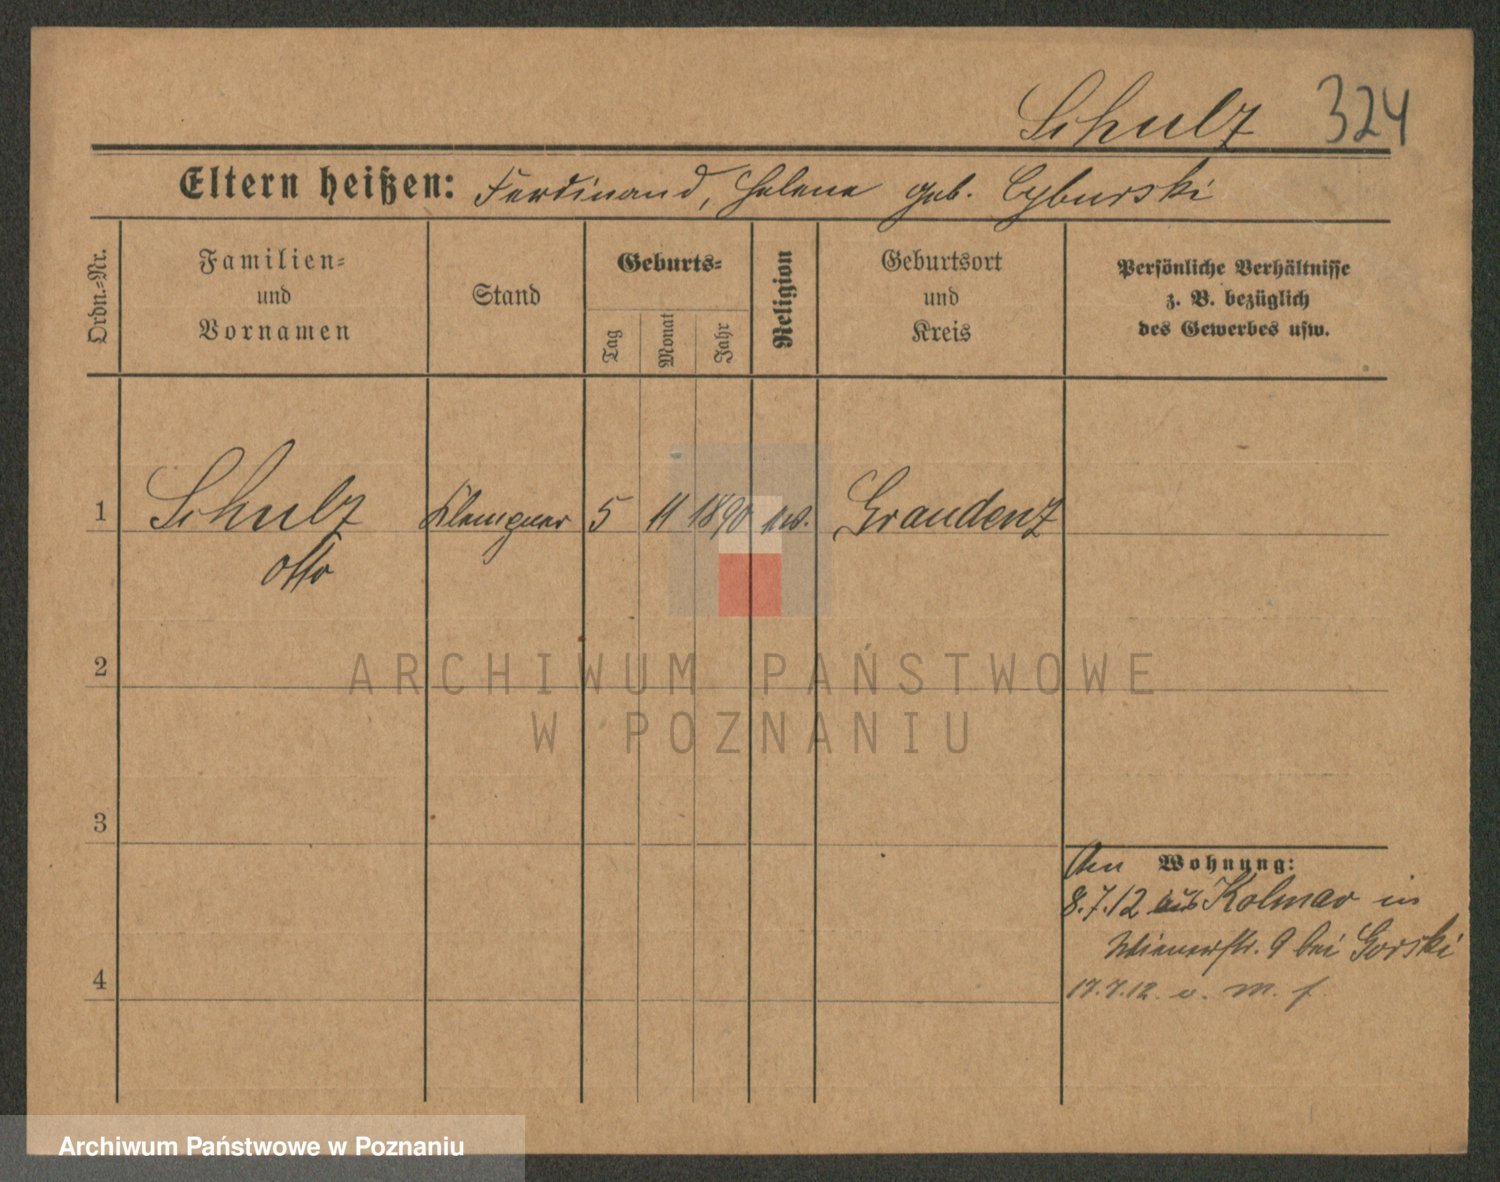 Schulz 324
Eltern heißen: Ferdinand, Helene geb. Cyburski
Ordn.=Nr.
Familien=
und
Vornamen
Stand
Geburts=
Tag
Monat
Jahr
Religion
Geburtsort
und
Kreis
Persönliche Verhältnisse
z. B. bezüglich
des Gewerbes usw.
1 Schulz Klempner 5 11 1890 Graudenz
Otto
ARCHIWUM PAŃSTWOWE
W POZNANIU
2
3
Wohnung:
8.7.12 aus Kolmar in
Wienerstr. 9 bei Gorski
4
17.7.12. v. M. f.
Archiwum Państwowe w Poznaniu